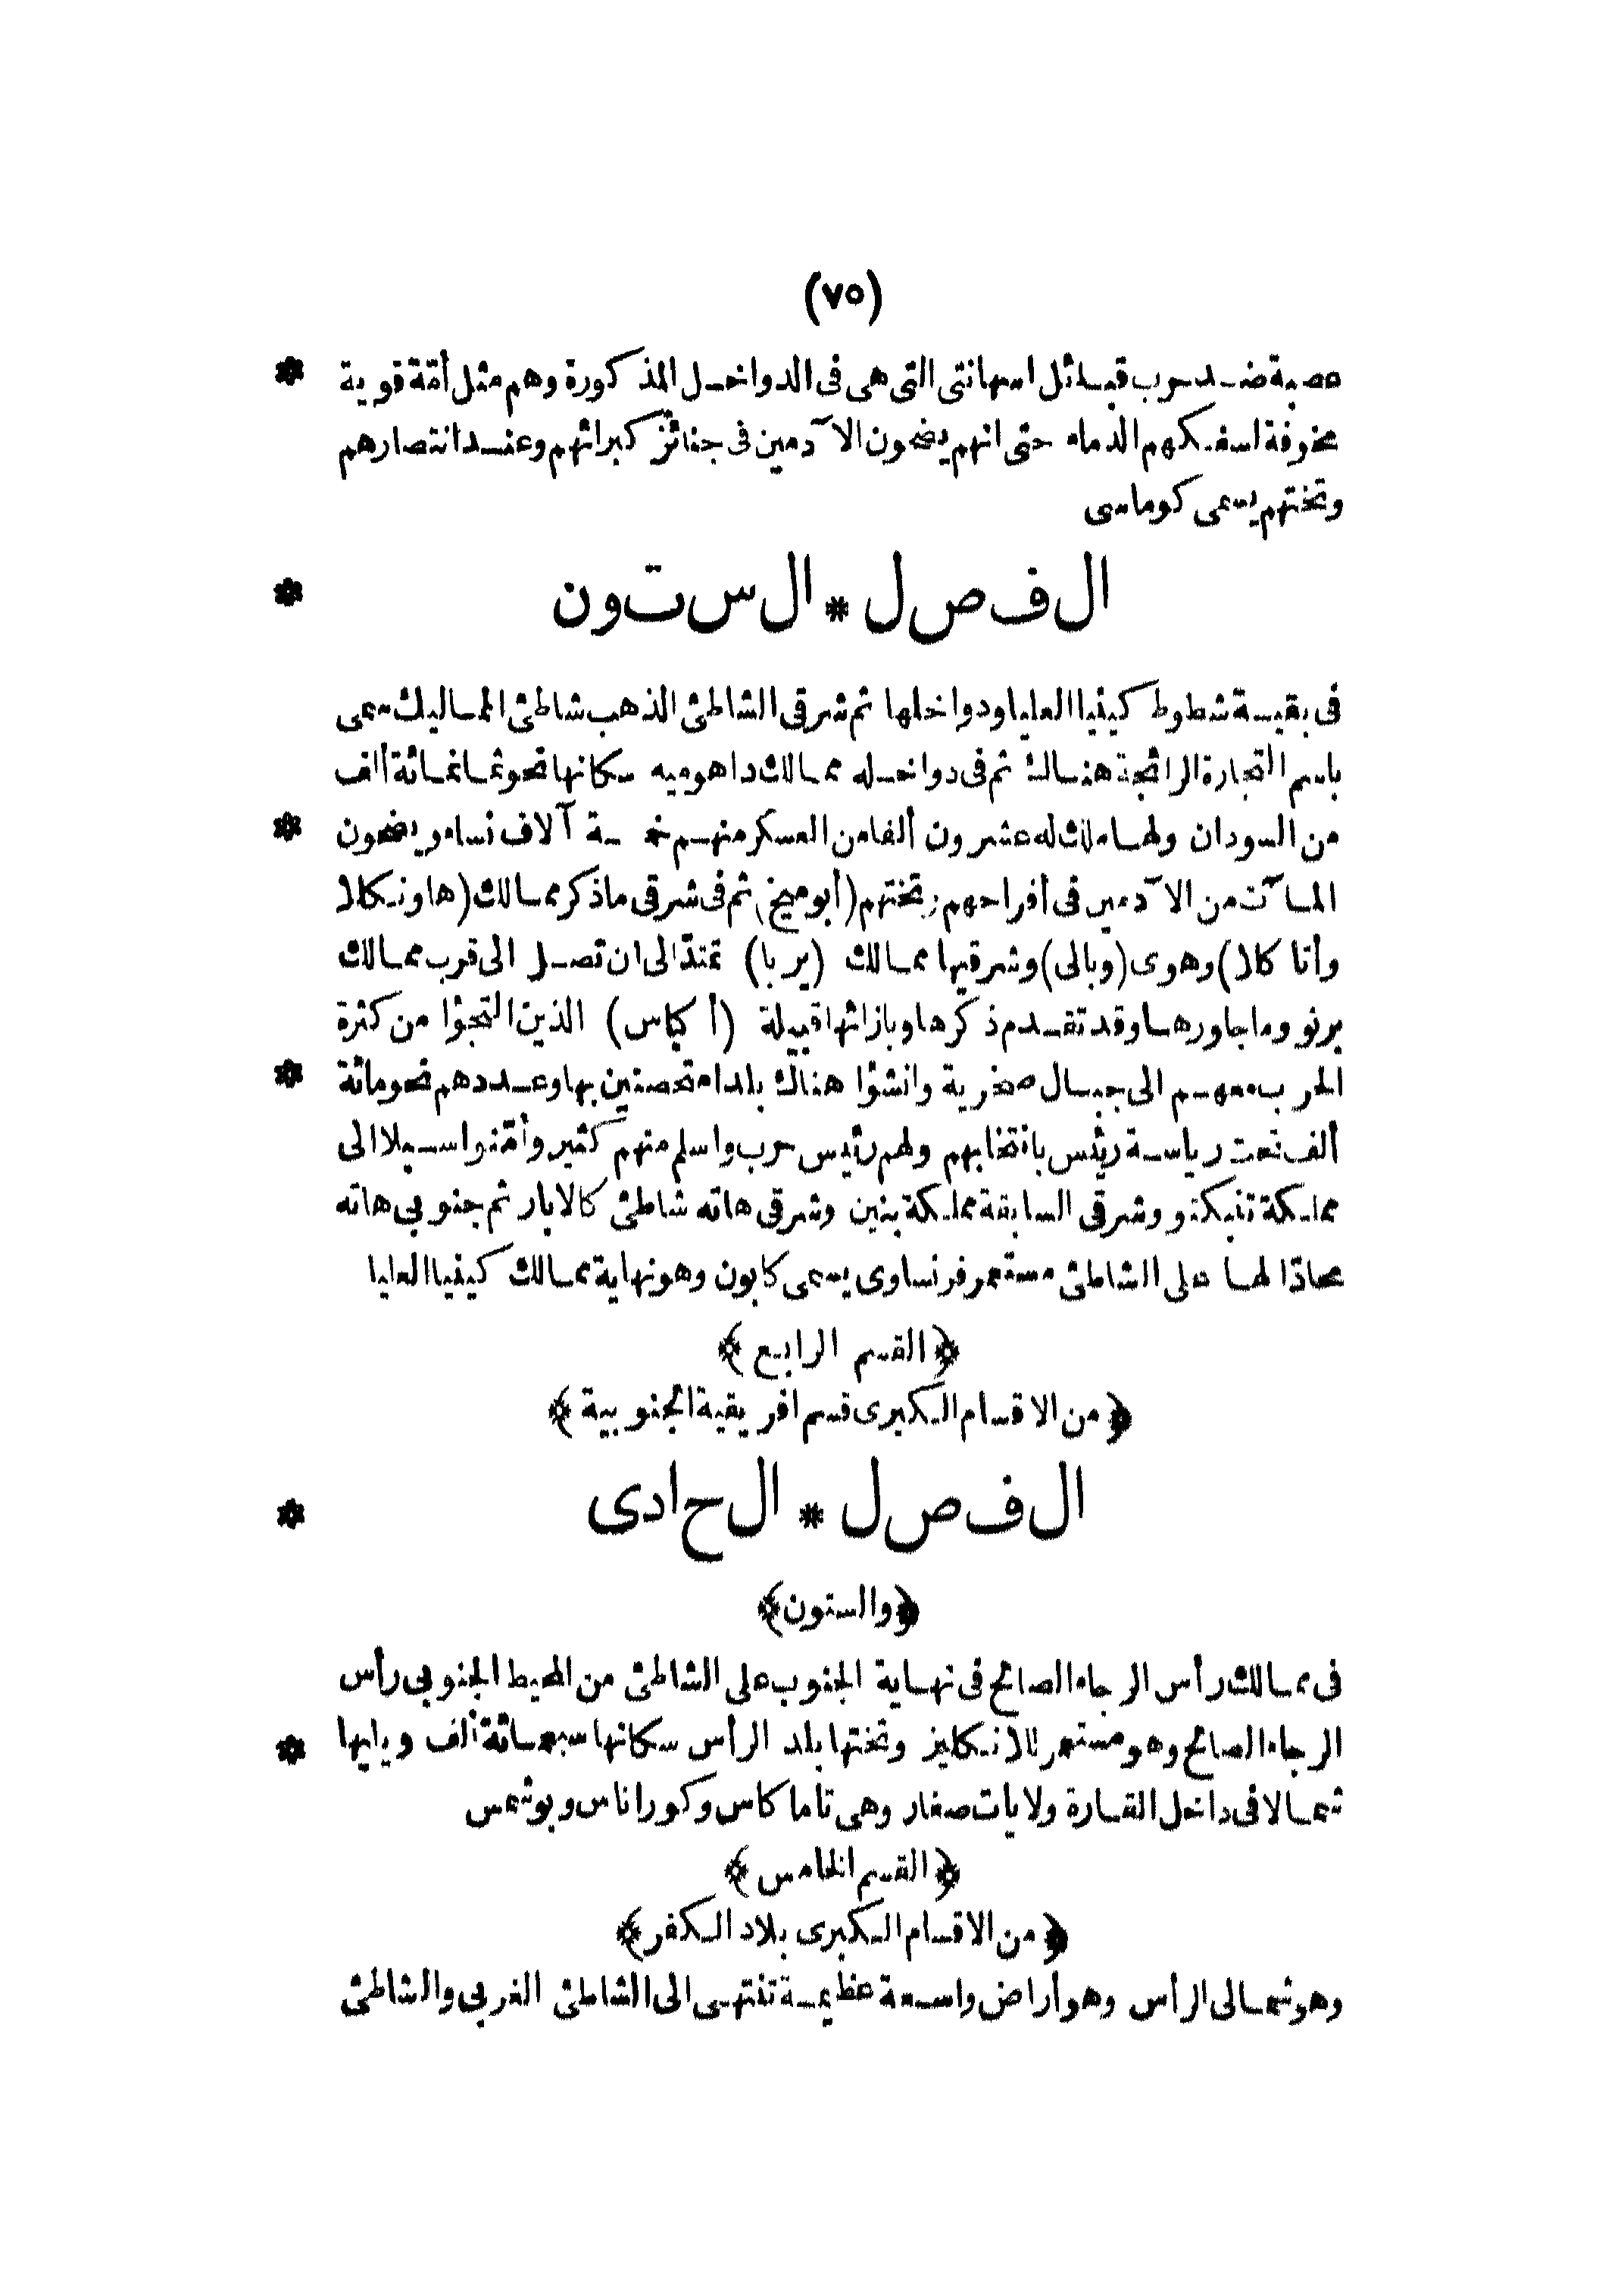 (٧٥)
عصبة ضد حرب قبائل اسهانتى التى هى فى الدواخل المذكورة وهم مثل أمّة قوية *
مخوفة لسفكهم الدماء حتى انهم يضحون الآدمين فى جنائز كبرائهم وعند انتصارهم
وتختهم يسمى كوماسى
الفصل * الستون *
فى بقية شطوط كينيا العليا ودواخلها ثم شرقى الشاطئ الذهب شاطئ المماليك سمى
باسم التجارة الرائجة هناك ثم فى دواخله ممالك داهوميه سكانها نحو ثمانمائة ألف
من السودان ولها ملك له عشرون ألفا من العسكر منهم خمسة آلاف نساء ويضحون *
المآت من الآدمين فى أفراحهم وتختهم (أبوميخ) ثم فى شرقى ماذكر ممالك (هاونكالا
وأناكالا) وهوى (وبالى) وشرقيها ممالك (يربا) تمتدّ الى ان تصل الى قرب ممالك
برنو وماجاورها وقد تقدم ذكرها وبازائها قبيلة (أكياس) الذين التجؤا من كثرة
الحرب معهم الى جبال صخرية وانشؤا هناك بلدا متحصنين بها وعددهم نحو مائة *
ألف تحت رياسة رئيس بانتخابهم ولهم رئيس حرب واسلم منهم كثير وأمّنوا سبيلا الى
مملكة تنبكتو وشرقى السابقة مملكة بنين وشرقى هاته شاطئ كالابار ثم جنوبى هاته
محاذا لها على الشاطئ مستعمر فرنساوى يسمى كابون وهو نهاية ممالك كينيا العليا
﴿القسم الرابع﴾
﴿من الاقسام الكبرى قسم افريقية الجنوبية﴾
الفصل * الحادى *
﴿والستون﴾
فى ممالك رأس الرجاء الصالح فى نهاية الجنوب على الشاطئ من المحيط الجنوبى رأس
الرجاء الصالح وهو مستعمر للانكليز وتختها بلد الرأس سكانها سبعمائة ألف ويليها *
شمالا فى داخل القارة ولايات صغار وهى ناماكاس وكوراناس وبوشمس
﴿القسم الخامس﴾
﴿من الاقسام الكبرى بلاد الكفر﴾
وهو شمالى الرأس وهو أراض واسعة عظيمة تنتهى الى الشاطئ الغربى والشاطئ